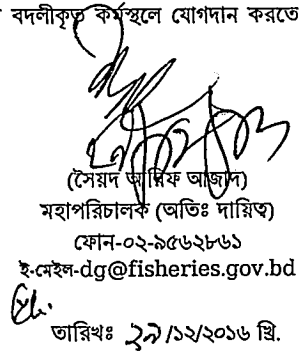 বদলীকৃত কর্মস্থলে যোগদান করতে
(সৈয়দ আরিফ আজাদ)
মহাপরিচালক (অতিঃ দায়িত্ব)
ফোন-০২-৯৫৬২৮৬১
ই-মেইল-dg@fisheries.gov.bd
তারিখঃ ২৯/১২/২০১৬ খ্রি.